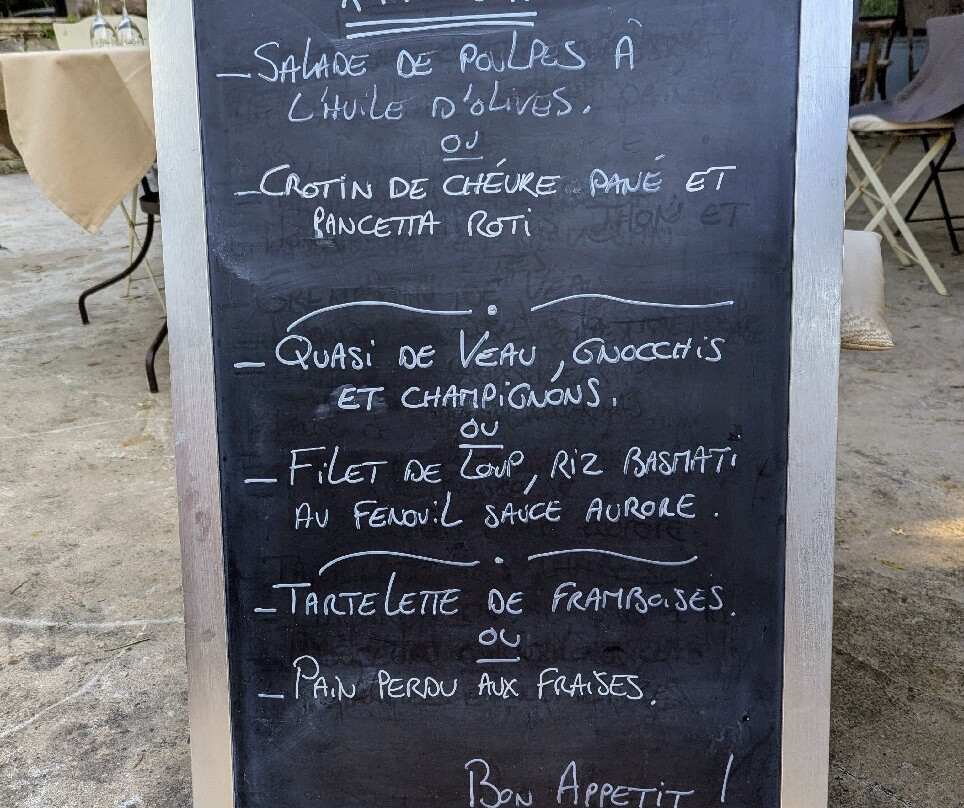 – SALADE DE POULPES À
L'HUILE D'OLIVES.
OU
– CROTIN DE CHÉVRE PANÉ ET
PANCETTA ROTI
– QUASI DE VEAU, GNOCCHIS
ET CHAMPIGNONS.
OU
– FILET DE LOUP, RIZ BASMATI
AU FENOUIL SAUCE AURORE.
– TARTELETTE DE FRAMBOISES.
OU
– PAIN PERDU AUX FRAISES.
BON APPETIT !